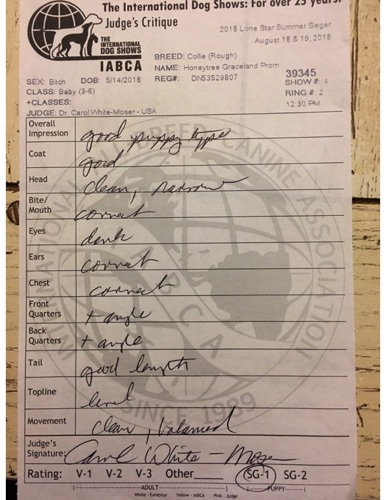 The International Dog Shows: For over 25 years!
Judge's Critique
2018 Lone Star Summer Sieger
August 18 & 19, 2018
THE
INTERNATIONAL
DOG SHOWS
IABCA
BREED: Collie (Rough)
NAME: Honeytree Graceland Prom
SEX: Bitch DOB: 5/14/2018 REG#: DN53529807
39345
SHOW #: 4
CLASS: Baby (3-6)
RING #: 2
+CLASSES:
12:30 PM
JUDGE: Dr. Carol White-Moser - USA
Overall Impression good puppy type
Coat good
Head clean, narrow
Bite/Mouth correct
Eyes dark
Ears correct
Chest correct
Front Quarters + angle
Back Quarters + angle
Tail good length
Topline level
Movement clean, balanced
Judge's Signature: Carol White-Moser
Rating: V-1 V-2 V-3 Other SG-1 SG-2
ADULT PUPPY
White - Exhibitor Yellow - IABCA Pink - Judge
INTERNATIONAL ALL BREED CANINE ASSOCIATION
IABCA
SINCE 1989